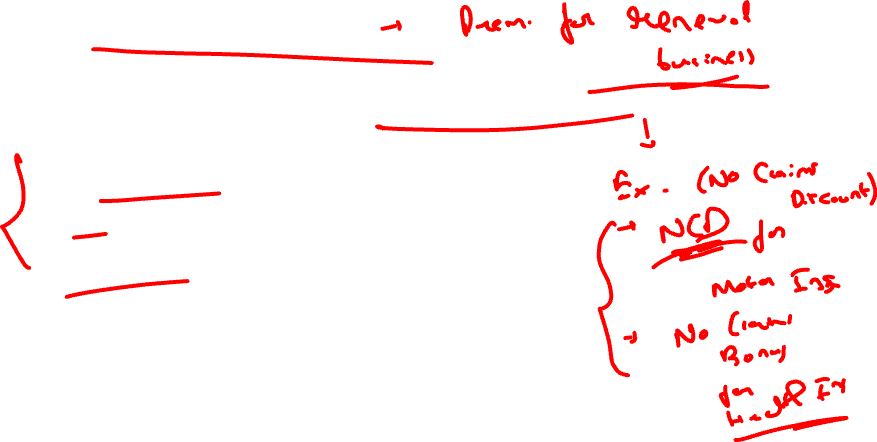 → Prem. for renewal
business
Ex. (No Claims
Discount)
→ NCD for
Motor Ins
→ No Claims
Bonus
for
Health Ins